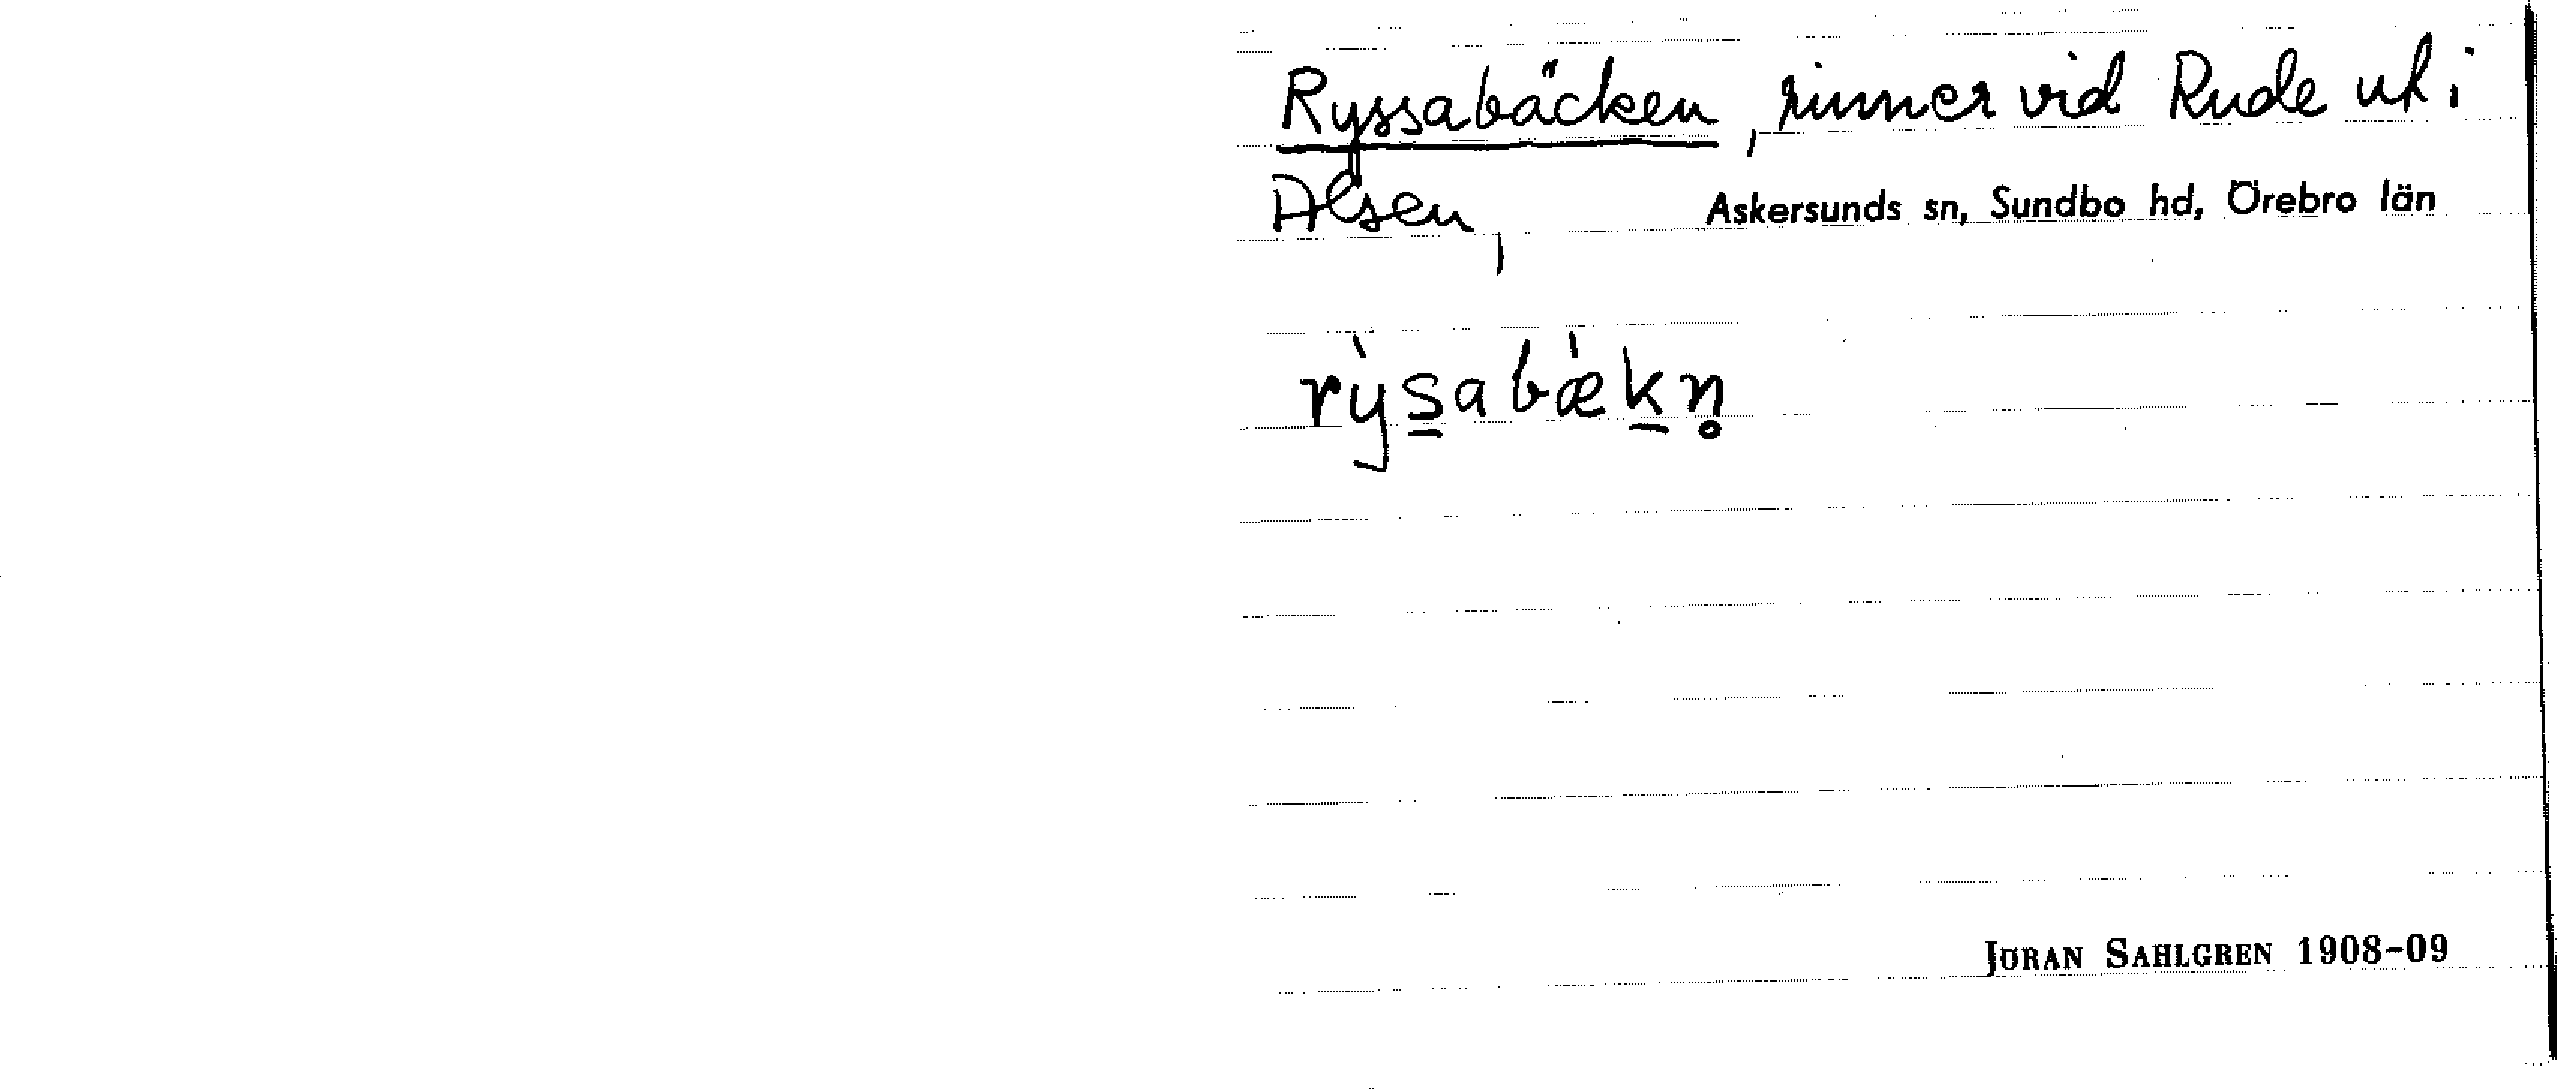 Ryssabäcken, rinner vid Rude ut i
Alsen, Askersunds sn, Sundbo hd, Örebro län
rỳs̲abǽk̲n̥
JÖRAN SAHLGREN 1908-09